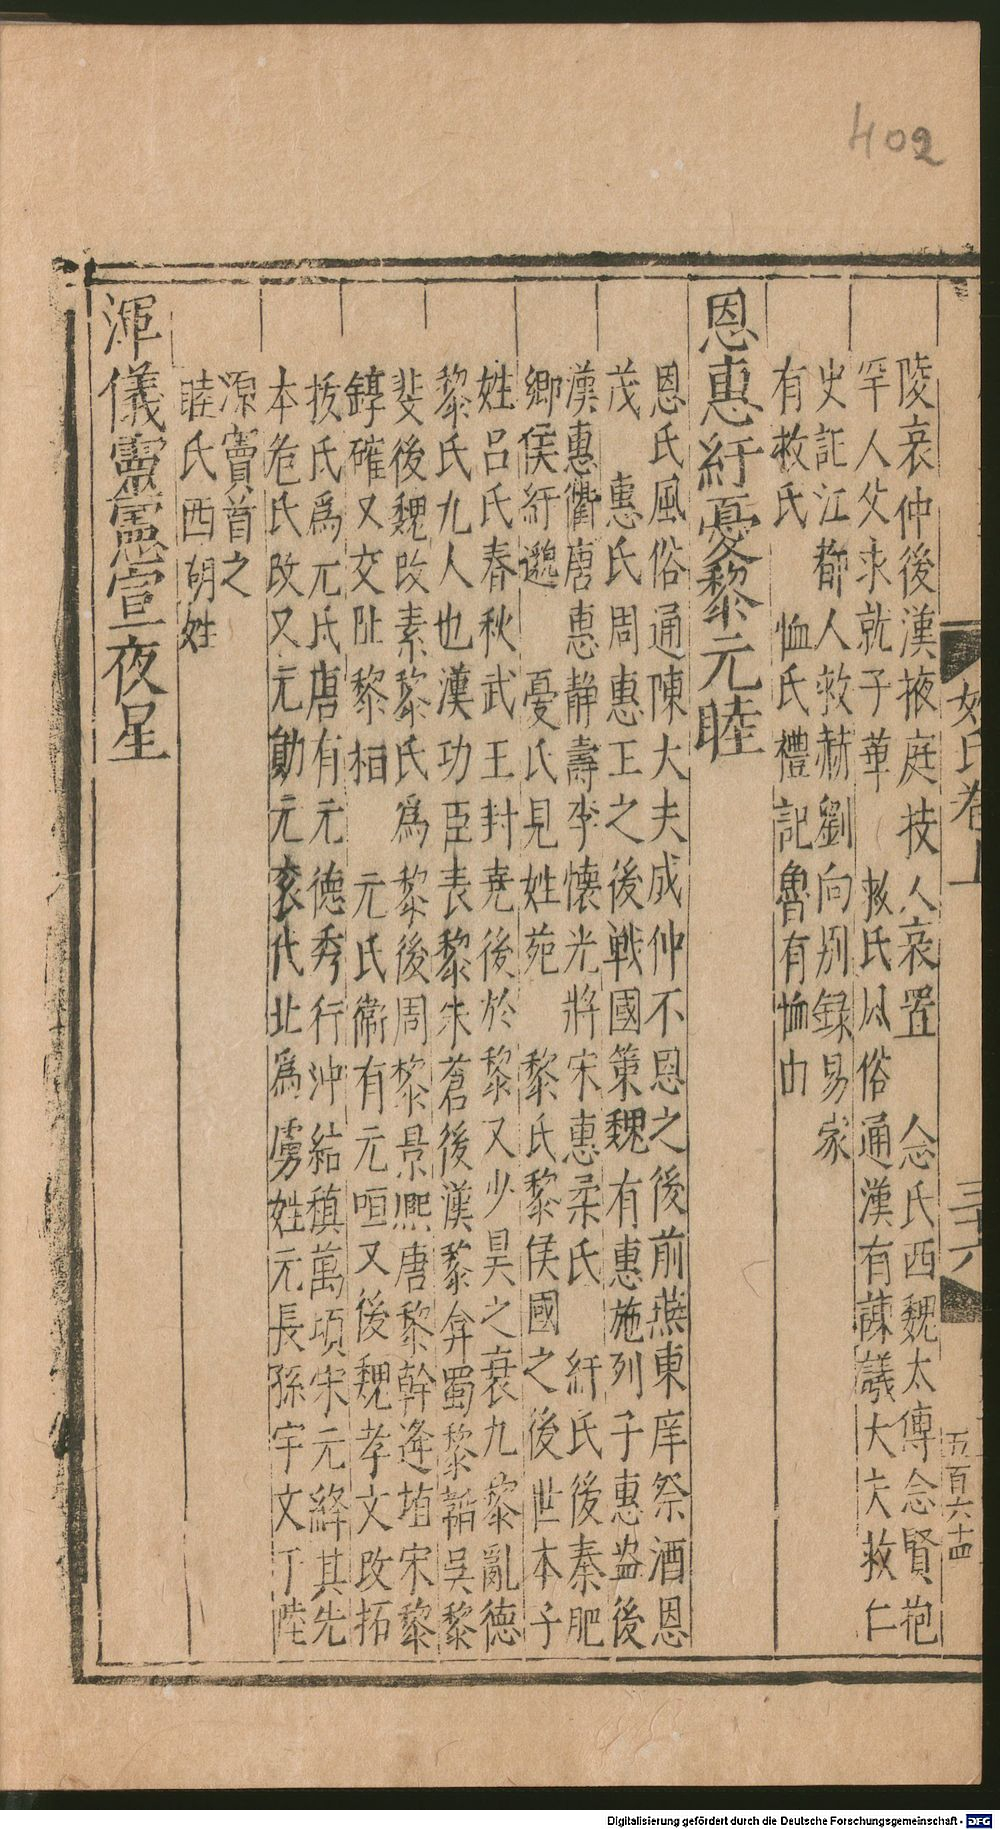 402
姓氏卷上
三十六
五百六十四
陵哀仲後漢掖庭技人哀置　念氏西魏太傅念賢抱
罕人父求就子華　救氏風俗通漢有諫議大夫救仁
史記江都人救赫劉向别録易家
有救氏　恤氏禮記魯有恤由
恩惠紆憂黎元睦
恩氏風俗通陳大夫成仲不恩之後前燕東庠祭酒恩
茂　惠氏周惠王之後戰國策魏有惠施列子惠盎後
漢惠衢唐惠静壽李懷光將宋惠柔氏　紆氏後秦肥
鄉侯紆邈　憂氏見姓苑　黎氏黎侯國之後世本子
姓吕氏春秋武王封堯後於黎又少昊之衰九黎亂德
黎氏九人也漢功臣表黎朱蒼後漢黎弇蜀黎韜吳黎
斐後魏改素黎氏爲黎後周黎景熈唐黎幹逄埴宋黎
錞確又交阯黎相　元氏衞有元咺又後魏孝文改拓
拔氏爲元氏唐有元德秀行沖結稹萬頃宋元絳其先
本危氏改又元勛元衮代北爲虜姓元長孫宇文于陸
源竇首之
睦氏西胡姓
渾儀靈憲宣夜星
Digitalisierung gefördert durch die Deutsche Forschungsgemeinschaft - DFG